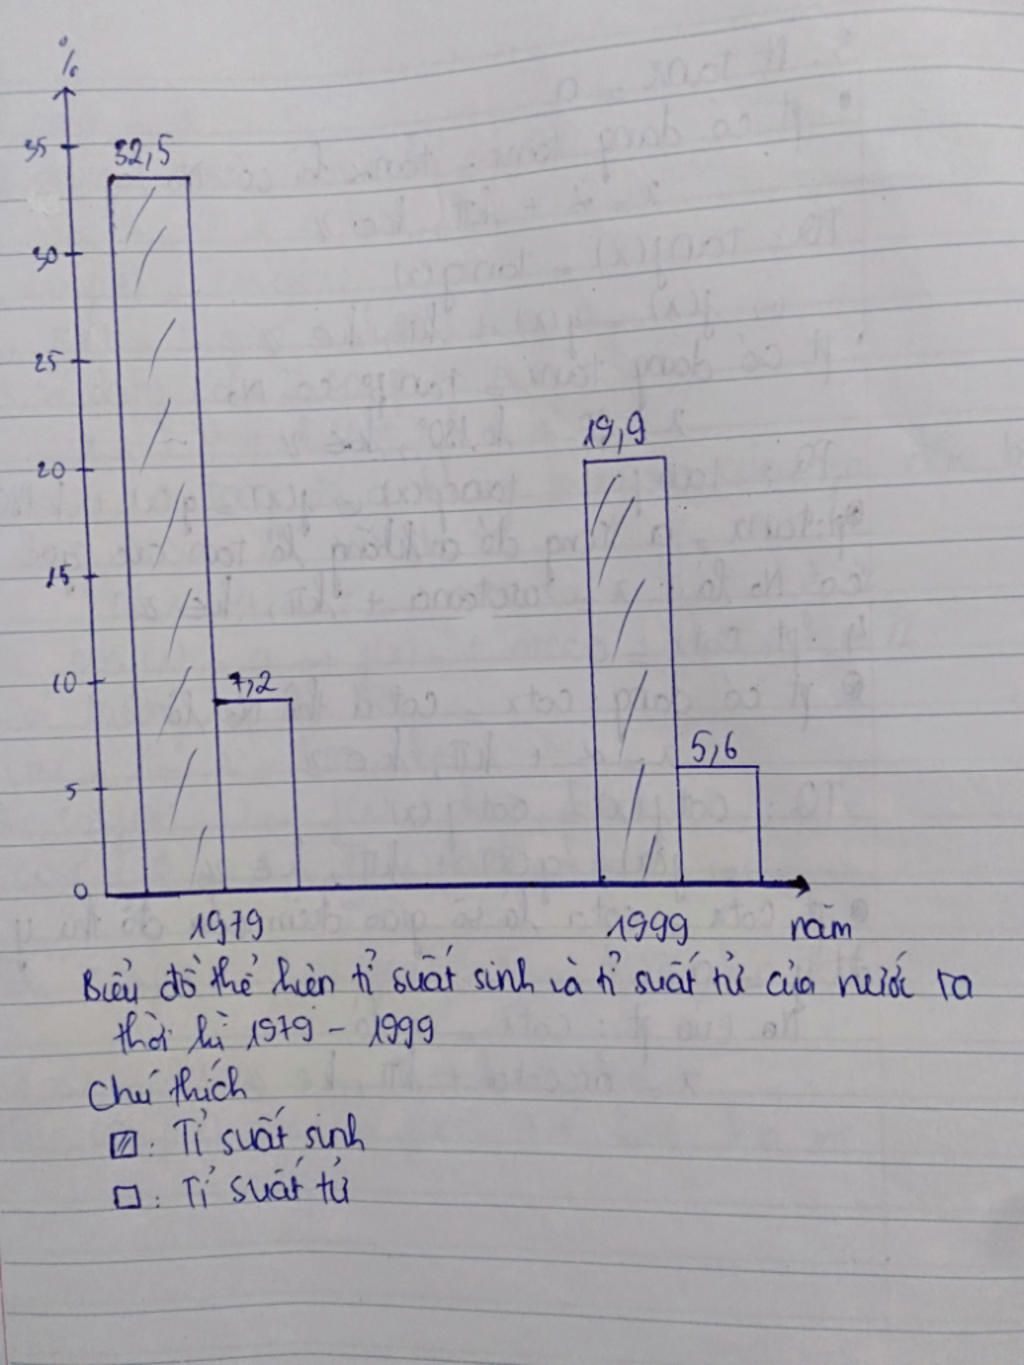 %
35
32,5
30
25
19,9
20
15
10
7,2
5,6
5
0
1979
1999
năm
Biểu đồ thể hiện tỉ suất sinh và tỉ suất tử của nước ta
thời kì 1979 - 1999
Chú thích
: Tỉ suất sinh
: Tỉ suất tử